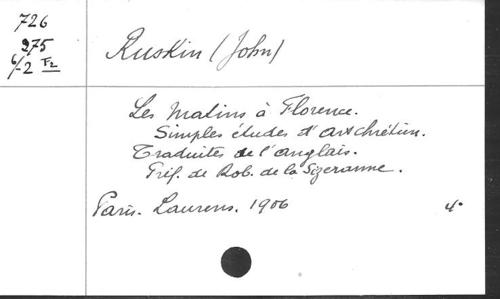 726
275
6/-2 F2
Ruskin (John)
Les Matins à Florence.
Simples études d'art chrétien.
Traduites de l'anglais.
Préf. de Rob. de la Sizeranne.
Paris. Laurens. 1906 4°